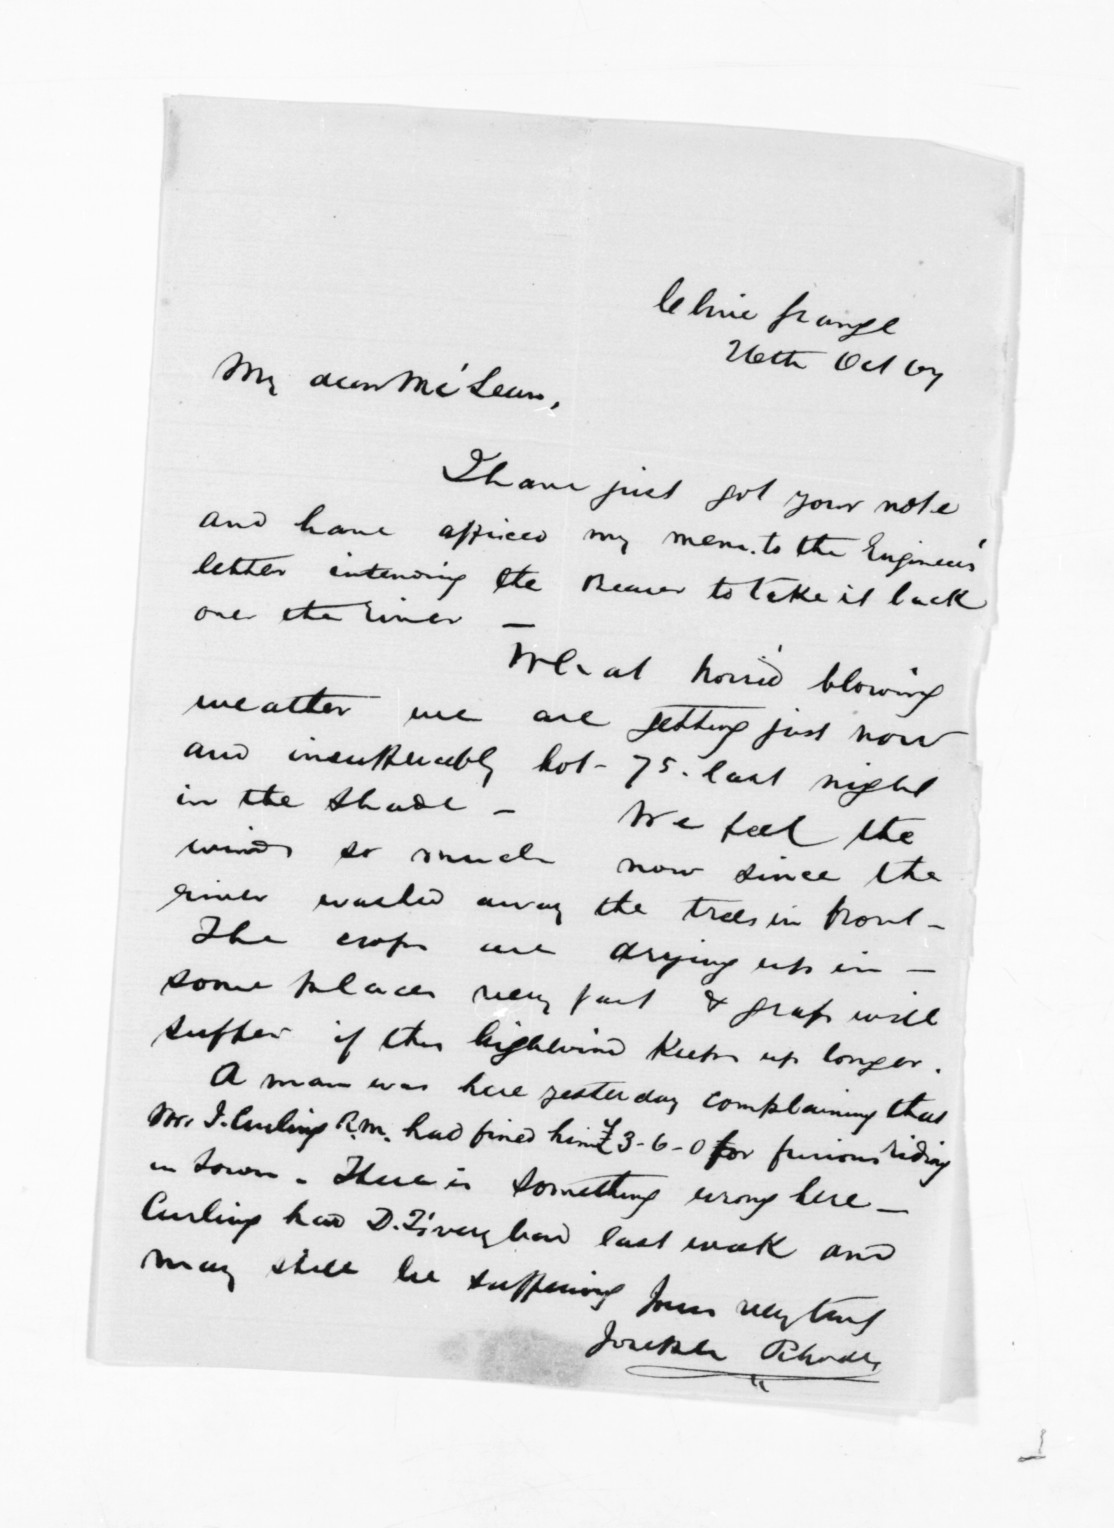 Clive Grange
26th Oct 67
My dear McLean,
I have just got your note
and have affixed my mem. to the Engineers'
letter intending the Bearer to take it back
over the river —
What horrid blowing
weather we are getting just now
and insufferably hot - 75. last night
in the Shade - We feel the
winds so much now since the
river washed away the trees in front -
The crops are drying up in -
some places very fast & grass will
suffer if this high wind keeps up longer.
A man was here yesterday complaining that
Mr. J. Curling R.M. had fined him £3-6-0 for furious riding
in town. There is something wrong here —
Curling had D.T.'s very bad last week and
may still be suffering Yours very truly
Joseph Rhodes
1